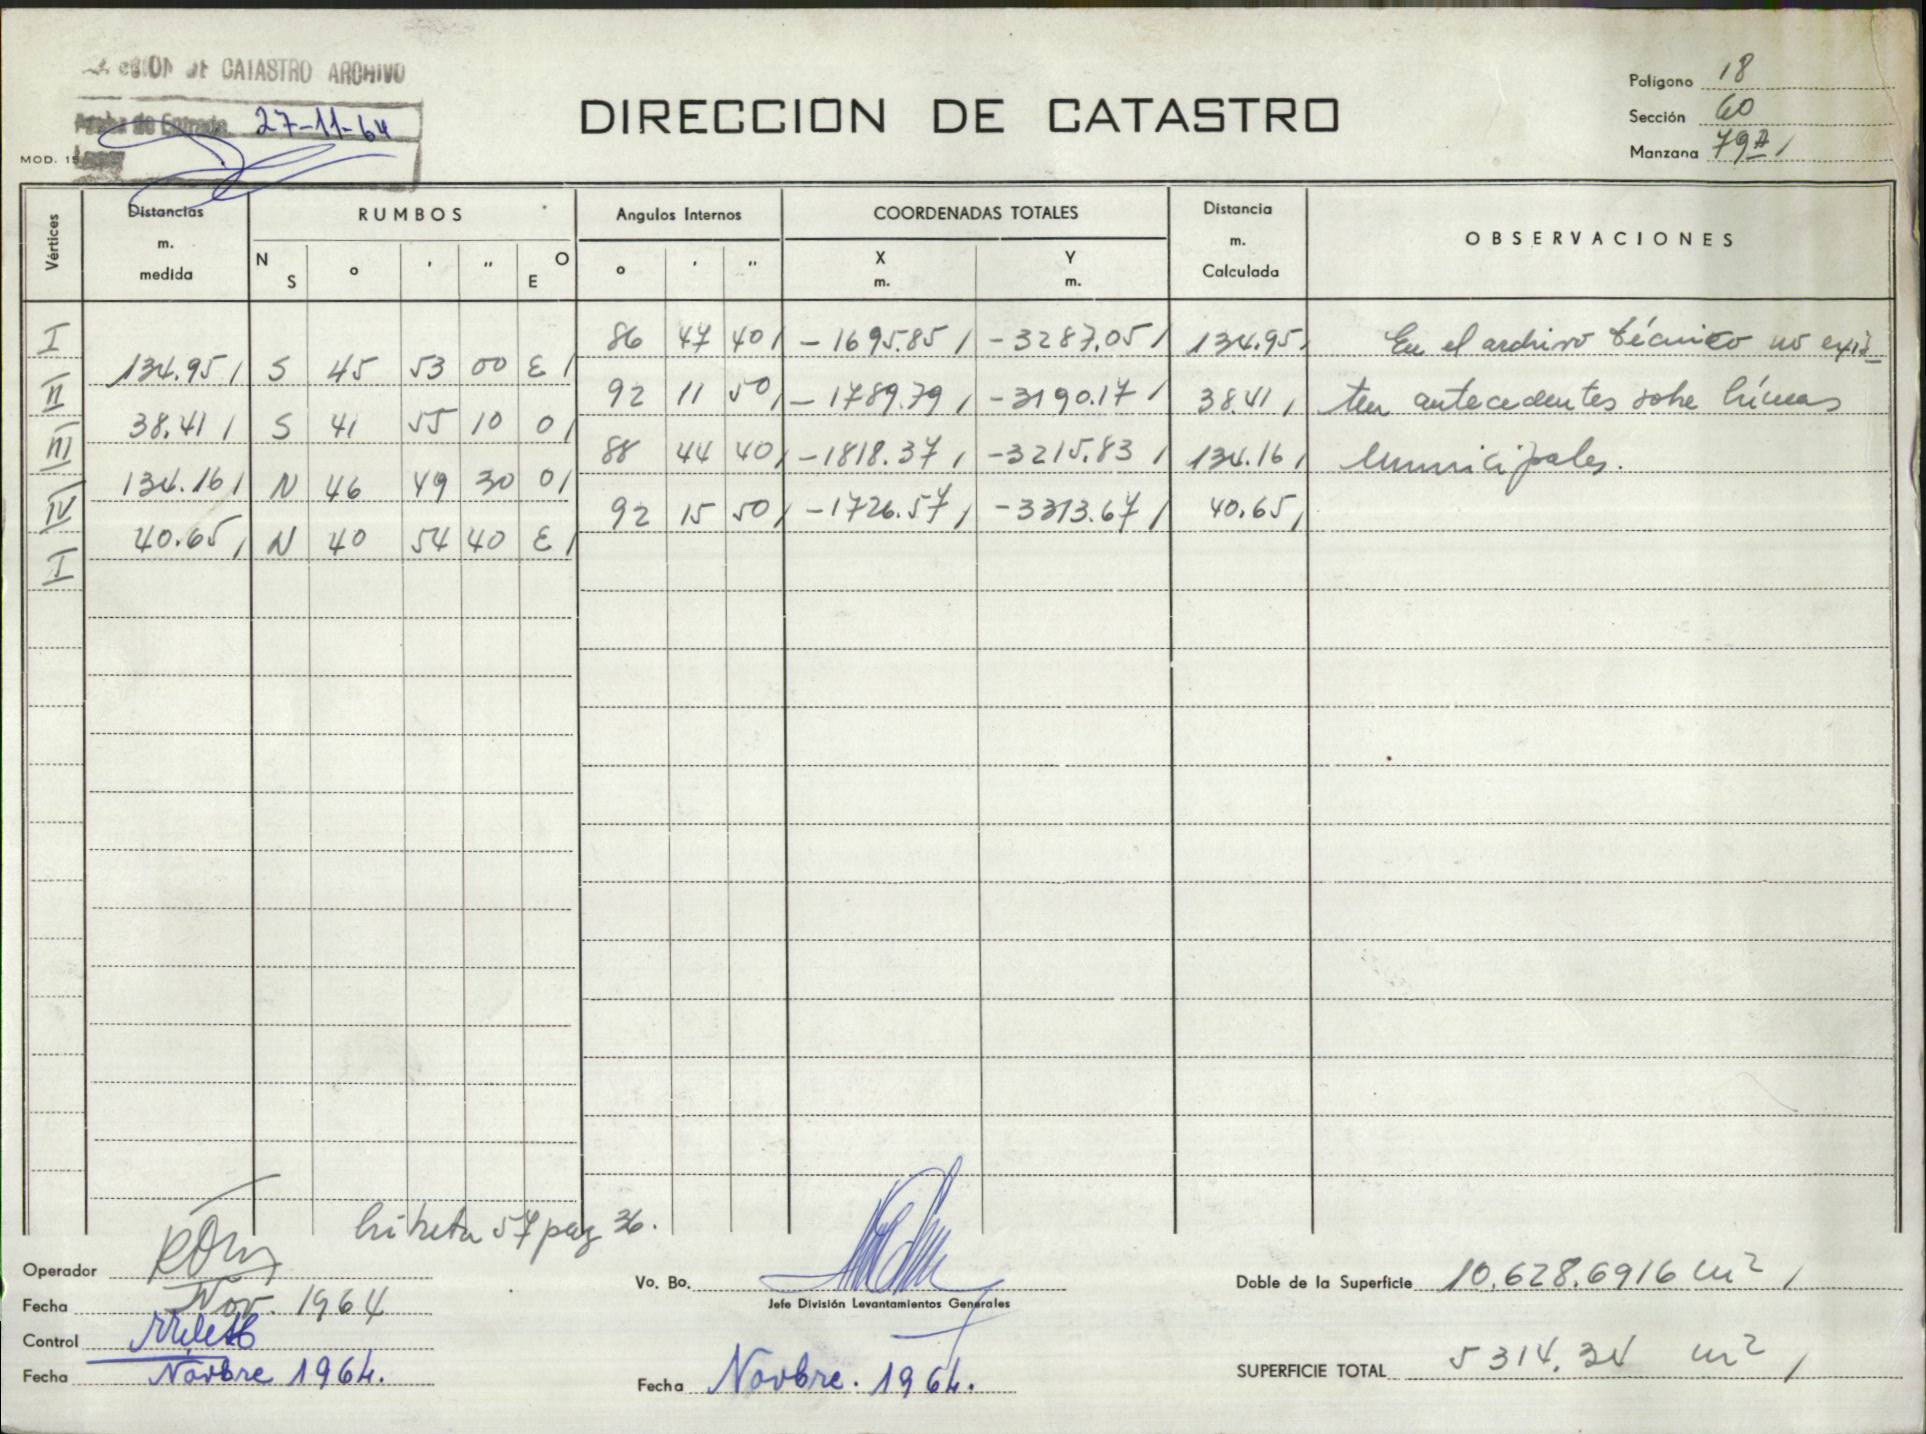 SECCION DE CATASTRO ARCHIVO
Fecha de Entrada 27-11-64
MOD. 15
DIRECCION DE CATASTRO
Polígono 18
Sección 60
Manzana 79A
Vértices
Distancias m. medida
RUMBOS
N S ° ' " O E
Angulos Internos
° ' "
COORDENADAS TOTALES
X m. Y m.
Distancia m. Calculada
OBSERVACIONES
I 86 47 40 -1695.85 -3287.05 134.95 En el archivo técnico no exis-
134.95 S 45 53 00 E
II 92 11 50 -1789.79 -3190.17 38.41 ten antecedentes sobre líneas
38.41 S 41 55 10 O
III 88 44 40 -1818.37 -3215.83 134.16 Municipales.
134.16 N 46 49 30 O
IV 92 15 50 -1726.57 -3313.67 40.65
40.65 N 40 54 40 E
I
libreta 57 pag 36.
Operador
Fecha Nov. 1964
Control
Fecha Novbre 1964.
Vo. Bo.
Jefe División Levantamientos Generales
Fecha Novbre. 1964.
Doble de la Superficie 10.628.6916 m2
SUPERFICIE TOTAL 5314.34 m2